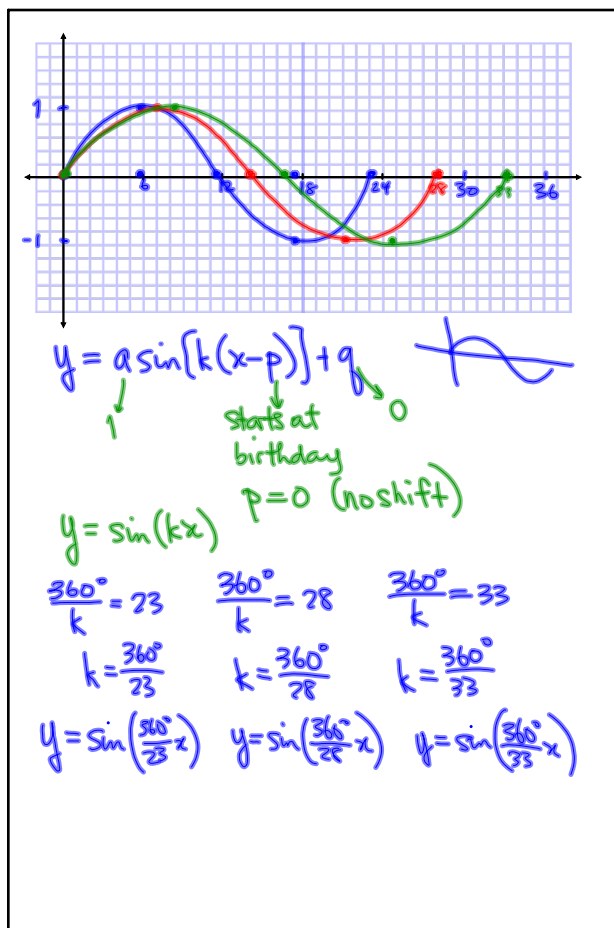 1
6 12 18 24 28 30 33 36
-1
y = a sin[k(x-p)] + q
1 starts at 0
birthday
p=0 (no shift)
y = sin(kx)
360°/k = 23 360°/k = 28 360°/k = 33
k = 360°/23 k = 360°/28 k = 360°/33
y = sin(360°/23 x) y = sin(360°/28 x) y = sin(360°/33 x)